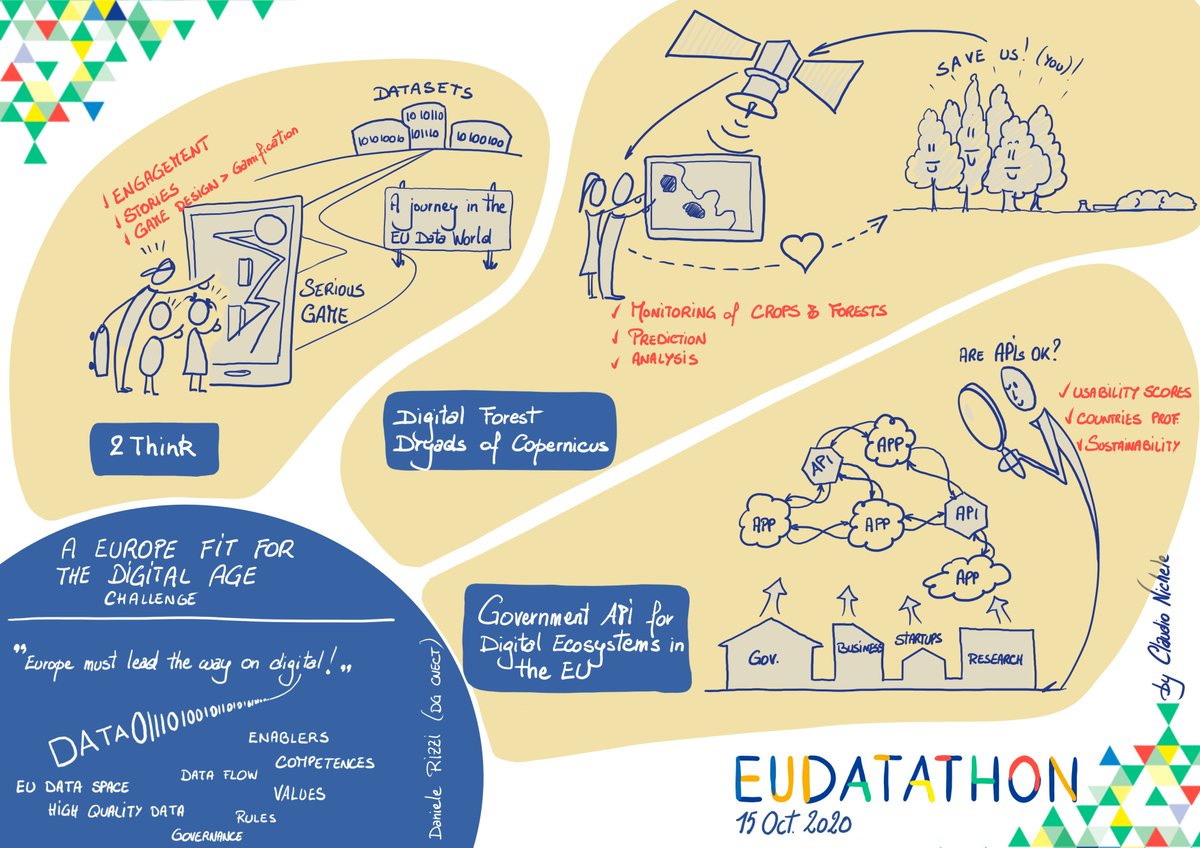 DATASETS
10 10110
101110
10101001 0
1010100
ENGAGEMENT
STORIES
GAME DESIGN > Gamification
A journey in the
EU Data World
SERIOUS
GAME
2 Think
SAVE US! (YOU)!
MONITORING of CROPS & FORESTS
PREDICTION
ANALYSIS
Digital Forest
Dryads of Copernicus
ARE APIs OK?
USABILITY SCORES
COUNTRIES PROF.
SUSTAINABILITY
APP
API
APP
APP
API
APP
GOV.
BUSINESS
STARTUPS
RESEARCH
Government API for
Digital Ecosystems in
the EU
A EUROPE FIT FOR
THE DIGITAL AGE
CHALLENGE
"Europe must lead the way on digital!"
DATA
ENABLERS
COMPETENCES
EU DATA SPACE
DATA FLOW
VALUES
HIGH QUALITY DATA
RULES
GOVERNANCE
Daniele Rizzi (DG CNECT)
by Claudio Nichele
EUDATATHON
15 Oct. 2020